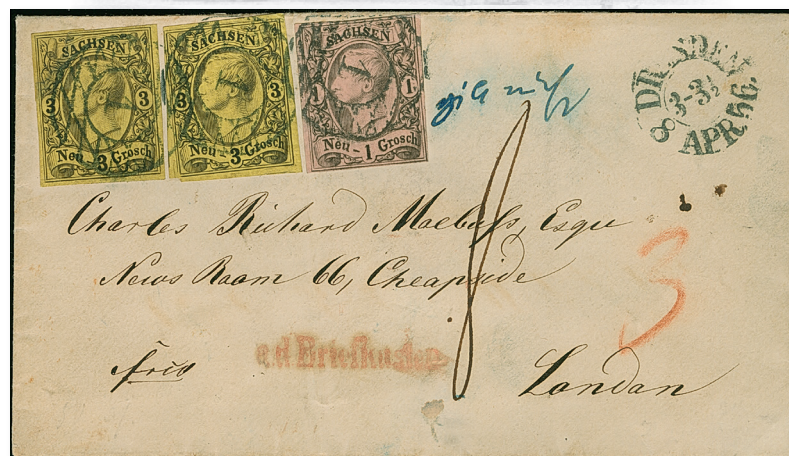 SACHSEN
3 3
Neu - 3 Grosch
SACHSEN
3 3
Neu - 3 Grosch
SACHSEN
1 1
Neu - 1 Grosch
DRESDEN
3-3½
8 APR 56.
Charles Richard
Esqu
News Room 66, Cheapside
8
3
a.d Briefkasten
frco
London